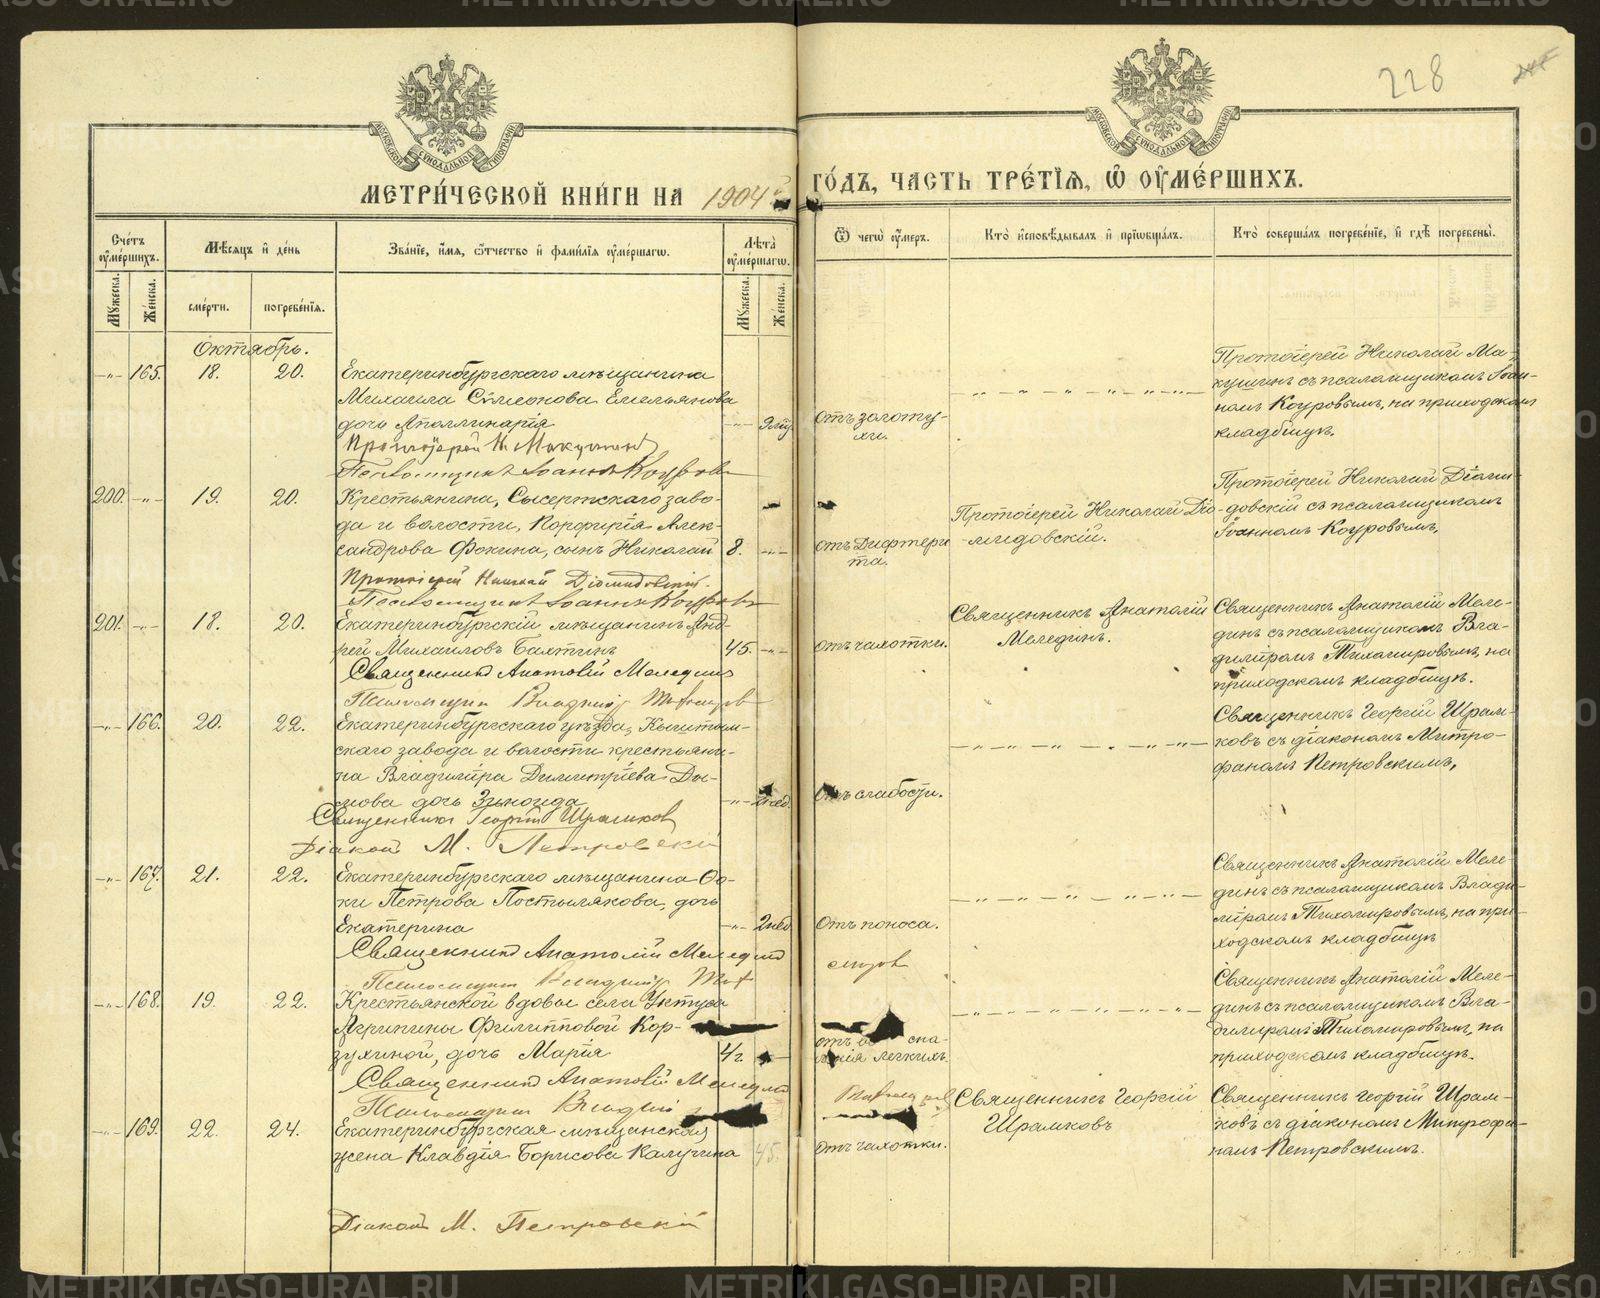 228
МЕТРИ́ЧЕСКОЙ КНИ́ГИ НА 1904й ГО́ДЪ, ЧАСТЬ ТРЕ́ТІЯ, Ѽ ОУМЕ́РШИХЪ.
МОСКОВСКОЙ СѴНОДАЛЬНОЙ ТИПОГРАФІИ
МОСКОВСКОЙ СѴНОДАЛЬНОЙ ТИПОГРАФІИ
Счетъ оумершихъ.
Мужеска.
Женска.
Мѣсяцъ и день
смерти.
погребенія.
Званіе, имя, отчество и фамилія оумершагѡ.
Лѣта оумершагѡ.
Мужеска.
Женска.
Ѿ чегѡ оумеръ.
Кто исповѣдывалъ и пріобщалъ.
Кто совершалъ погребеніе, и гдѣ погребены.
Октябрь.
-„- 165. 18. 20.
Екатеринбургскаго мѣщанина
Михаила Симеонова Емельянова
дочь Аполлинарія
Протоіерей Н. Макушинъ
Псаломщикъ Іоаннъ Коуровъ
отъ золоту-
хи.
Протоіерей Николай Ма-
кушинъ съ псаломщикомъ Іоан-
номъ Коуровымъ, на приходскомъ
кладбищѣ.
200. -„- 19. 20.
Крестьянина, Сысертскаго заво-
да и волости, Порфирія Алек-
сандрова Фокина, сынъ Николай 8. -„-
Протоіерей Николай Діомидовскій.
Псаломщикъ Іоаннъ Коуровъ
отъ Дифтери
та.
Протоіерей Николай Діо-
мидовскій.
Протоіерей Николай Діоми-
довскій съ псаломщикомъ
Іоанномъ Коуровымъ,
201. -„- 18. 20.
Екатеринбургскій мѣщанинъ Анд-
рей Михаиловъ Бахтинъ 45. -„-
Священникъ Анатолій Мелединъ
Псаломщикъ Владиміръ Тихомировъ
отъ чахотки.
Священникъ Анатолій
Мелединъ.
Священникъ Анатолій Меле-
динъ съ псаломщикомъ Вла-
диміромъ Тихомировымъ, на
приходскомъ кладбищѣ.
-„- 166. 20. 22.
Екатеринбургскаго уѣзда, Кыштым-
скаго завода и волости крестьяни-
на Владиміра Димитріева
дочь Зинаида
Священникъ Георгій Шрамковъ
Діаконъ М. Петровскій
отъ слабости.
Священникъ Георгій Шрам-
ковъ съ діакономъ Митро-
фаномъ Петровскимъ,
-„- 167. 21. 22.
Екатеринбургскаго мѣщанина Фо-
ки Петрова Постылякова, дочь
Екатерина -„- 2 нед
Священникъ Анатолій Мелединъ
Псаломщикъ Владиміръ Тих
омировъ
отъ поноса.
Священникъ Анатолій Меле-
динъ съ псаломщикомъ Влади-
міромъ Тихомировымъ, на при-
ходскомъ кладбищѣ
-„- 168. 19. 22.
Крестьянской вдовы села Уктуса
Агрипины Филипповой Кор-
зухиной, дочь Марія
Священникъ Анатолій Мелединъ
Псаломщикъ Владиміръ
Тихомировъ
отъ
легкихъ.
Священникъ Анатолій Меле-
динъ съ псаломщикомъ Вла-
диміромъ Тихомировымъ, на
приходскомъ кладбищѣ.
-„- 169. 22. 24.
Екатеринбургская мѣщанская
жена Клавдія Борисова Калугина 45.
Діаконъ М. Петровскій
отъ чахотки.
Священникъ Георгій
Шрамковъ
Священникъ Георгій Шрам-
ковъ съ діакономъ Митрофа-
номъ Петровскимъ.
METRIKI.GASO-URAL.RU